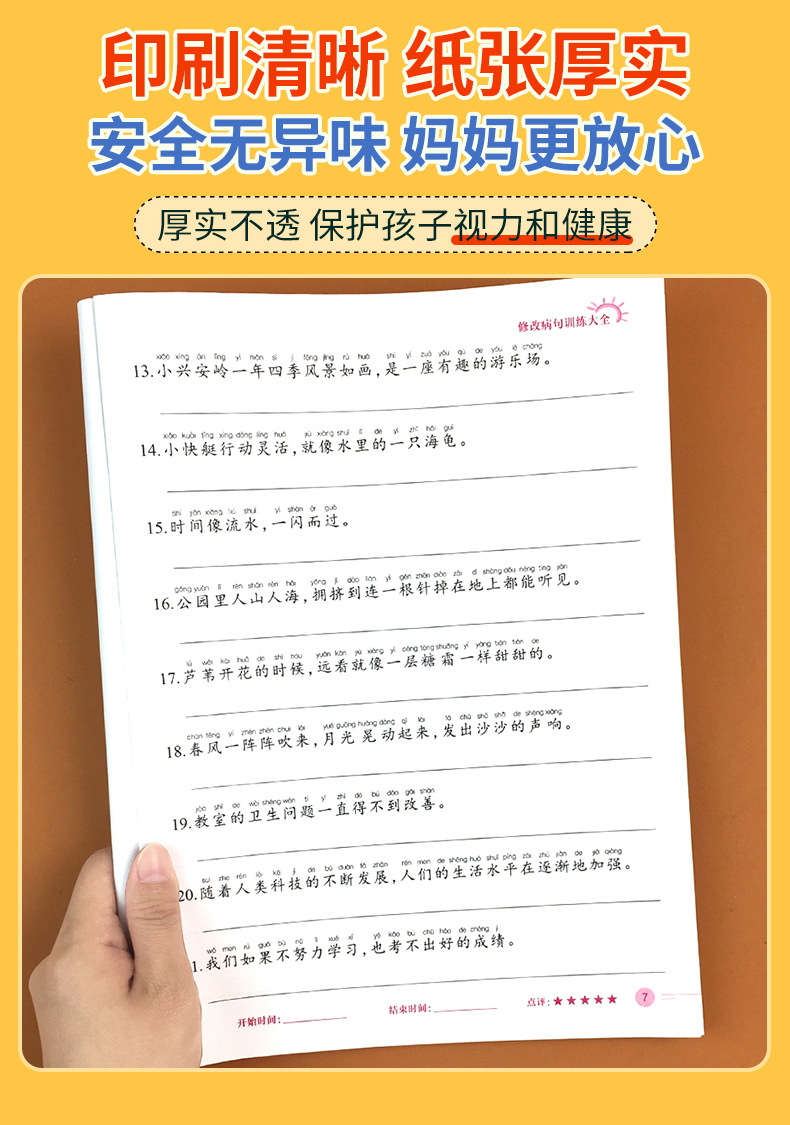 印刷清晰 纸张厚实
安全无异味 妈妈更放心
厚实不透 保护孩子视力和健康
修改病句训练大全
xiǎo xīng ān lǐng yì nián sì jì fēng jǐng rú huà shì yí zuò yǒu qù de yóu lè chǎng
13.小兴安岭一年四季风景如画，是一座有趣的游乐场。
xiǎo kuài tǐng xíng dòng líng huó jiù xiàng shuǐ lǐ de yì zhī hǎi guī
14.小快艇行动灵活，就像水里的一只海龟。
shí jiān xiàng liú shuǐ yì shǎn ér guò
15.时间像流水，一闪而过。
gōng yuán lǐ rén shān rén hǎi yōng jǐ dào lián yì gēn zhēn diào zài dì shàng dōu néng tīng jiàn
16.公园里人山人海，拥挤到连一根针掉在地上都能听见。
lú wěi kāi huā de shí hou yuǎn kàn jiù xiàng yì céng táng shuāng yí yàng tián tián de
17.芦苇开花的时候，远看就像一层糖霜一样甜甜的。
chūn fēng yí zhèn zhèn chuī lái yuè guāng huàng dòng qǐ lái fā chū shā shā de shēng xiǎng
18.春风一阵阵吹来，月光晃动起来，发出沙沙的声响。
jiào shì de wèi shēng wèn tí yì zhí dé bú dào gǎi shàn
19.教室的卫生问题一直得不到改善。
suí zhe rén lèi kē jì de bú duàn fā zhǎn rén men de shēng huó shuǐ píng zài zhú jiàn de jiā qiáng
20.随着人类科技的不断发展，人们的生活水平在逐渐地加强。
wǒ men rú guǒ bù nǔ lì xué xí yě kǎo bù chū hǎo de chéng jì
1.我们如果不努力学习，也考不出好的成绩。
开始时间：________ 结束时间：________ 点评：★★★★★ 7